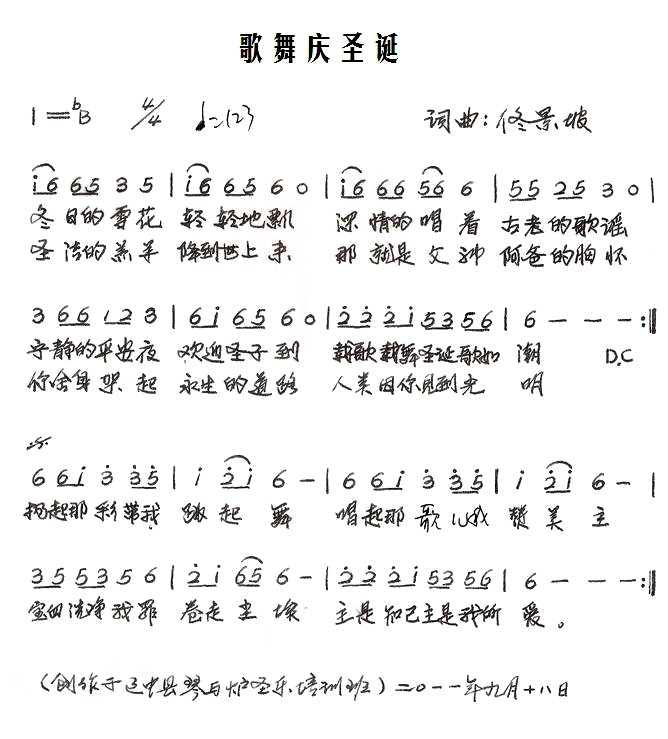 歌舞庆圣诞
1=bB 4/4 ♩=123 词曲:佟景坡
i6 65 3 5 | i6 65 6 0 | i6 66 56 6 | 55 25 3 0 |
冬日的雪花 轻轻地飘 深情的唱着 古老的歌谣
圣洁的羔羊 降到世上来 那就是父神 阿爸的胸怀
3 66 12 3 | 6i 65 6 0 | 22 2i 53 56 | 6 - - - :||
宁静的平安夜 欢迎圣子到 载歌载舞圣诞歌如潮 D.C
你舍身架起 永生的道路 人类因你见到光明
6 6i 3 35 | i 2i 6 - | 6 6i 3 35 | i 2i 6 - |
扬起那彩带我 跳起舞 唱起那歌儿我 赞美主
35 53 5 6 | 2i 65 6 - | 22 2i 53 56 | 6 - - - :||
宝血洗净我罪 卷走尘埃 主是知己主是我所爱。
(创作于 县琴与炉圣乐培训班)二0一一年九月十八日